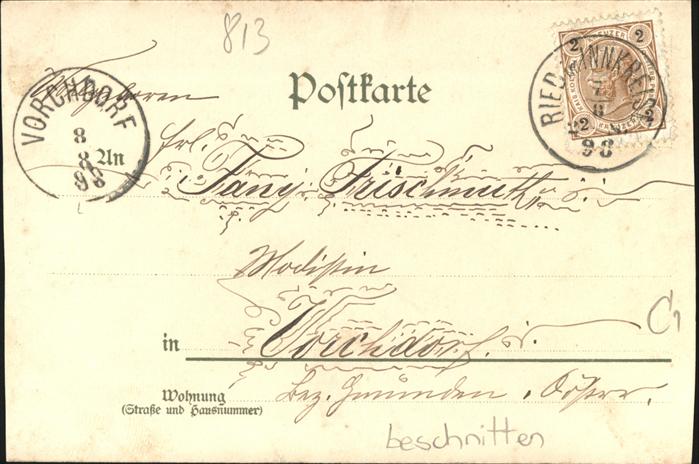 813
Postkarte
2 KREUZER 2
2 2
RIED INNKREIS
7
8
98
VORCHDORF
8
8
98
An
Frl.
Fany Frischmuth
Modistin
in Vorchdorf
Wohnung
(Straße und Hausnummer)
Bez. Gmunden, Oösterr.
C1
beschnitten